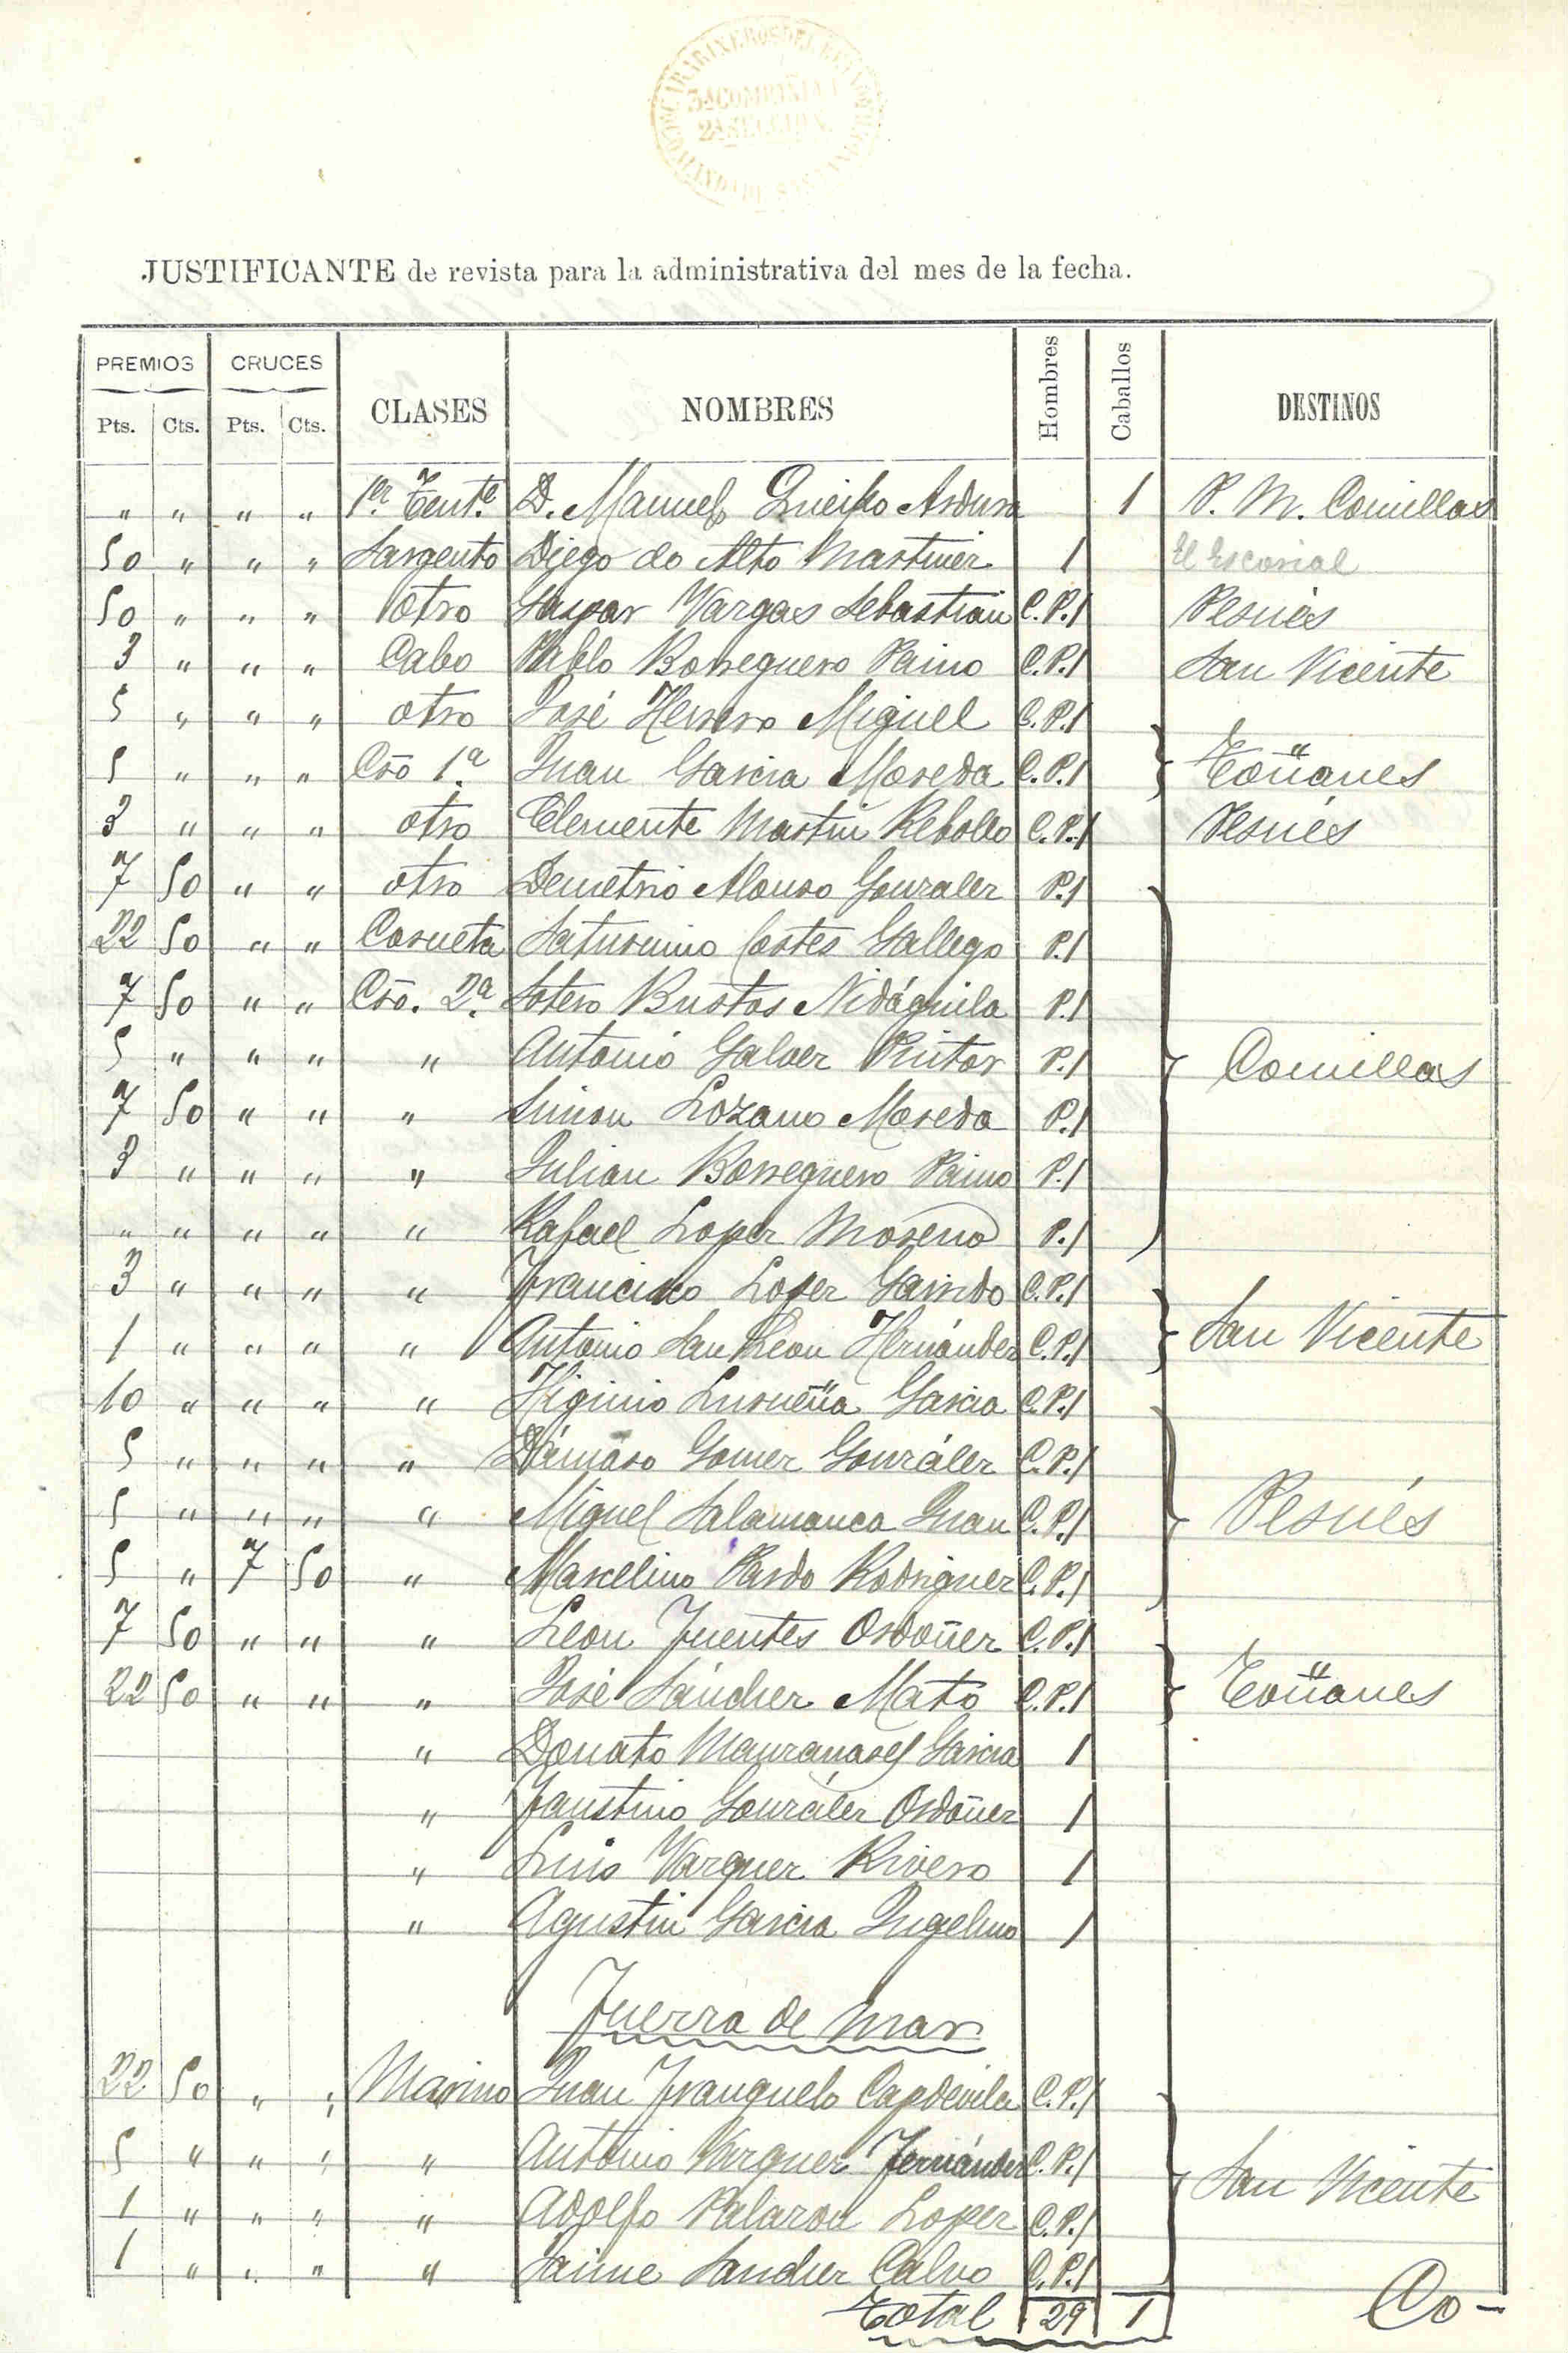 3ª COMPAÑIA
2ª SECCION.
JUSTIFICANTE de revista para la administrativa del mes de la fecha.
PREMIOS CRUCES CLASES NOMBRES Hombres Caballos DESTINOS
Pts. Cts. Pts. Cts.
" " " " 1er Tente. D. Manuel Queipo 1 P. M. Comillas
50 " " " Sargento Diego de Alto Martinez 1 El Escorial
50 " " " otro Gaspar Vargas Sebastian C.P.1 Pesués
3 " " " Cabo Pablo Borreguero Paino C.P.1 San Vicente
5 " " " otro José Herrero Miguel C.P.1
5 " " " Cro 1ª Juan Garcia Moreda C.P.1 } Toñanes
3 " " " otro Clemente Martin Rebollo C.P.1 Pesués
7 50 " " otro Demetrio Alonso Gonzalez P.1
22 50 " " Corneta Saturnino Cortes Gallego P.1
7 50 " " Cro. 2ª Sotero Bustos Nidáguila P.1
5 " " " " Antonio Galvez Pintor P.1 } Comillas
7 50 " " " Simon Lozano Moreda P.1
3 " " " " Julian Borreguero Paino P.1
" " " " " Rafael Lopez Moreno P.1
3 " " " " Francisco Lopez Garrido C.P.1
1 " " " " Antonio San Leon Hernández C.P.1 } San Vicente
10 " " " " Higinio Lurueña Garcia C.P.1
5 " " " " Dámaso Gomez González C.P.1
5 " " " " Miguel Salamanca Juan C.P.1 } Pesués
5 " 7 50 " Marcelino Pardo Rodriguez C.P.1
7 50 " " " Leon Fuentes Ordoñez C.P.1
22 50 " " " José Sánchez Mato C.P.1 } Toñanes
" Donato Manzanares Garcia 1
" Faustino González Ordoñez 1
" Luis Vazquez Rivero 1
" Agustin Garcia 1
Fuerza de mar
22 50 " " Marino Juan Franquelo Capdevila C.P.1
5 " " " " Antonio Vazquez Fernández C.P.1
1 " " " " Adolfo Palazon Lopez C.P.1 } San Vicente
1 " " " " Jaime Sanchez Calvo C.P.1
Total 29 1 Co-